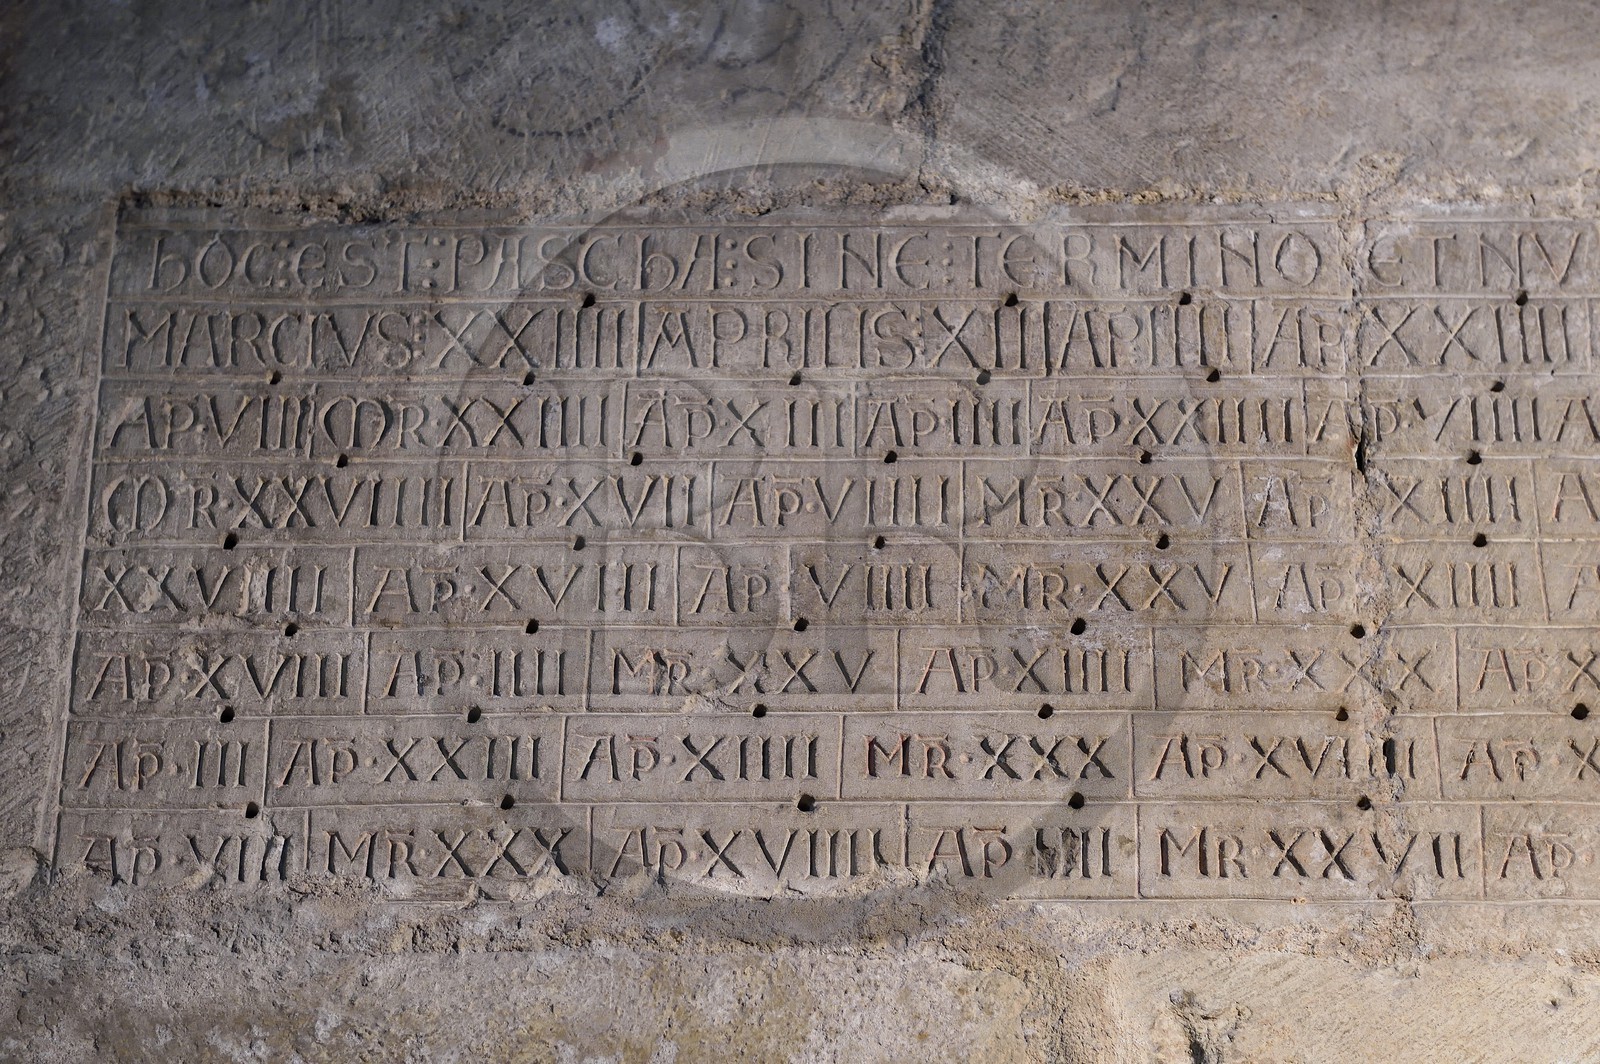 hOC:EST:PASChA:SINE:TERMINO ET NV
MARCIVS:XXIIII APRILIS:XII AP IIII AP XXIIII
AP·VIII MR·XXIIII AP XIII AP·IIII AP·XXIIIII AP·VIIII A
MR·XXVIIII AP·XVII AP·VIIII MR·XXV AP XIIII A
XXVIIII AP·XVIII AP VIIII MR·XXV AP XIIII A
AP·XVIII AP·IIII MR·XXV AP XIIII MR·XXX AP X
AP·III AP·XXIII AP·XIIII MR·XXX AP XVIIII AP·X
AP·VIII MR·XXX AP·XVIIII AP·IIII MR XXVII AP·